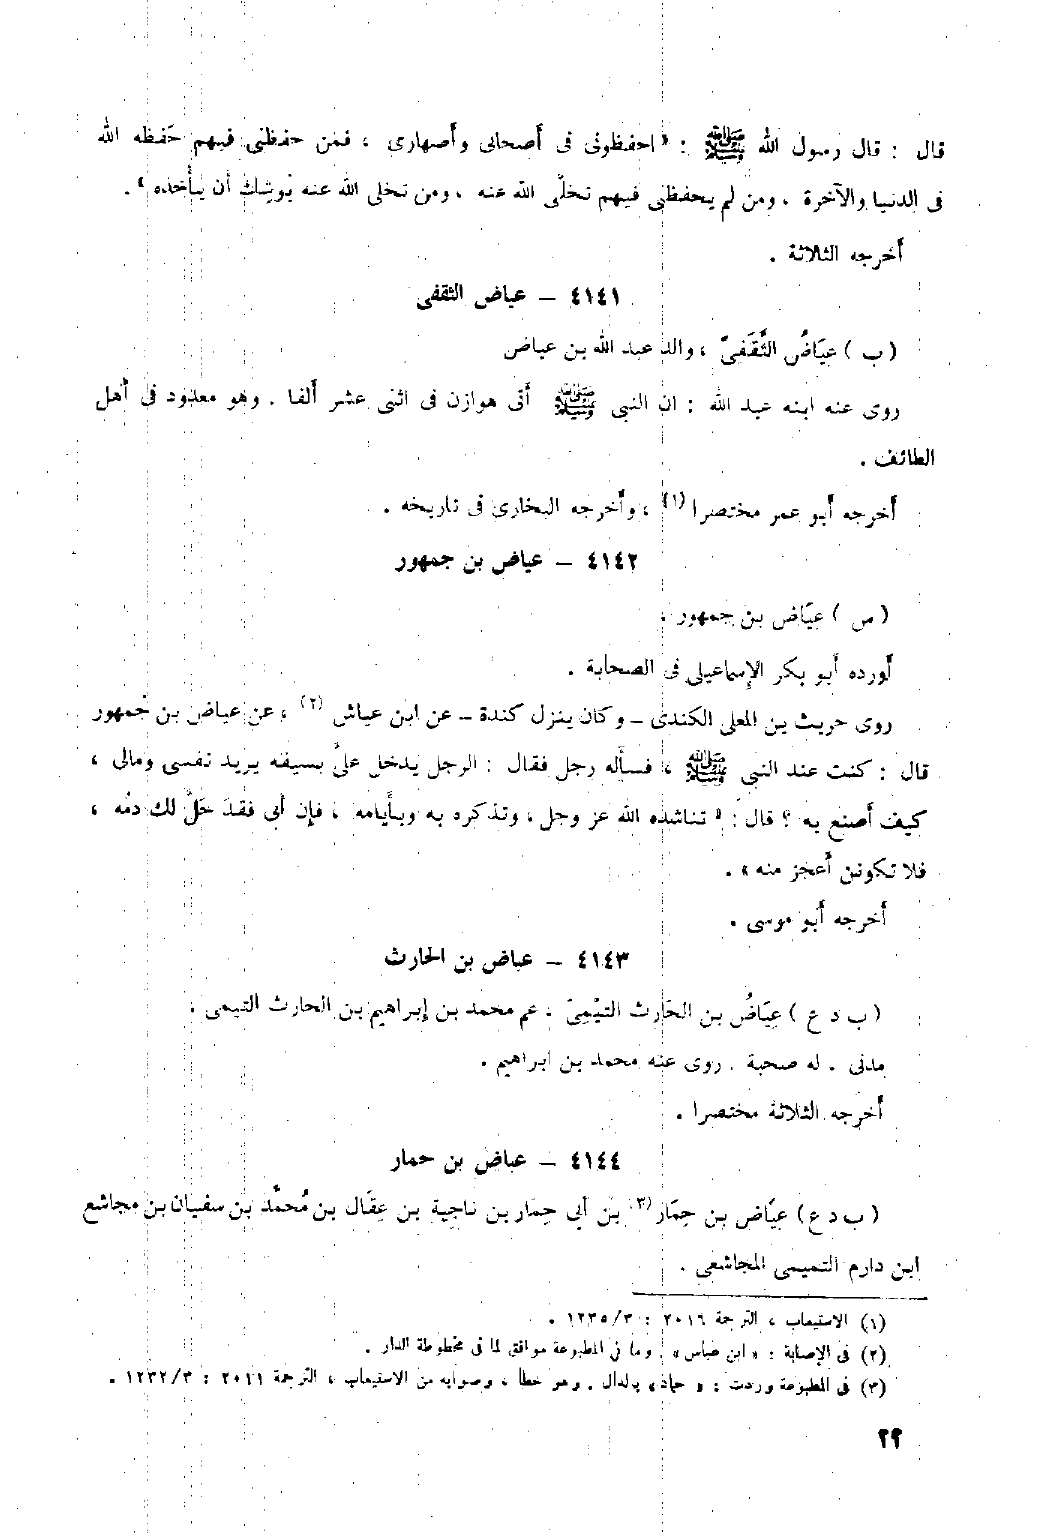 قال : قال رسول الله ﷺ : « احفظونى فى أصحابى وأصهارى ، فمن حفظنى فيهم حَفظه الله
فى الدنيا والآخرة ، ومن لم يحفظنى فيهم تخلَّى الله عنه ، ومن تخلى الله عنه يُوشِك أن يأخذه » .
أخرجه الثلاثة .
٤١٤١ – عياض الثقفى
( ب ) عِيَاضُ الثَّقَفىّ ، والد عبد الله بن عياض
روى عنه ابنه عبد الله : ان النبى ﷺ أتى هوازن فى اثنى عشر ألفا . وهو معدود فى أهل
الطائف .
أخرجه أبو عمر مختصرا (١) ، وأخرجه البخارى فى تاريخه .
٤١٤٢ – عياض بن جمهور
( س ) عِيَاض بن جمهور .
أورده أبو بكر الإسماعيلى فى الصحابة .
روى حريث بن المعلى الكندى – وكان ينزل كندة – عن ابن عياش (٢) ، عن عياض بن جُمهور
قال : كنت عند النبى ﷺ ، فسأله رجل فقال : الرجل يدخل علىَّ بسيفه يريد نفسى ومالى ،
كيف أصنع به ؟ قال : « تناشده الله عز وجل ، وتذكره به وبأيامه ، فإن أبى فقد حَلَّ لك دمُه ،
فلا تكونن أعجز منه » .
أخرجه أبو موسى .
٤١٤٣ – عياض بن الحارث
( ب د ع ) عِيَاضُ بن الحَارث التيْمِىّ ، عم محمد بن إبراهيم بن الحارث التيمى .
مدنى . له صحبة . روى عنه محمد بن ابراهيم .
أخرجه الثلاثة مختصرا .
٤١٤٤ – عياض بن حمار
( ب د ع ) عِيَاض بن حِمَار (٣) بن أبي حِمار بن ناجِية بن عِقَال بن مُحمَّد بن سفيان بن مجاشع
ابن دارم التميمى المجاشعى .
(١) الاستيعاب ، الترجمة ٢٠١٦ : ١٢٣٥/٣ .
(٢) فى الإصابة : « ابن عباس » . وما فى المطبوعة موافق لما فى مخطوطة الدار .
(٣) فى المطبوعة وردت : « حماد » بالدال . وهو خطأ ، وصوابه من الاستيعاب ، الترجمة ٢٠١١ : ١٢٣٢/٣ .
٢٢